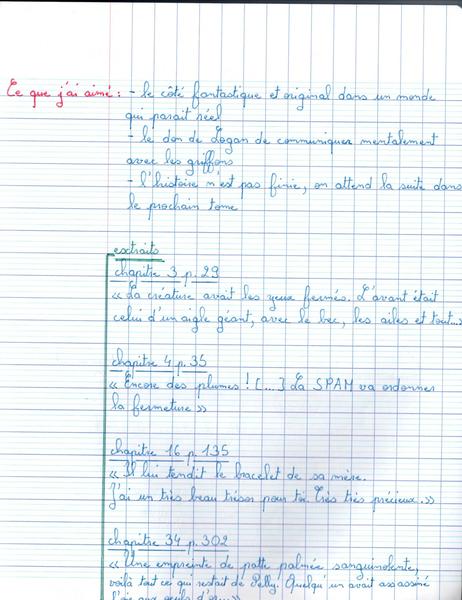 Ce que j'ai aimé : - le côté fantastique et original dans un monde
qui parait réel
- le don de Logan de communiquer mentalement
avec les griffons
- l'histoire n'est pas finie, on attend la suite dans
le prochain tome
extraits
chapitre 3 p. 29
« La créature avait les yeux fermés. L'avant était
celui d'un aigle géant, avec le bec, les ailes et tout...»
chapitre 4 p. 35
« Encore des plumes ! [...] La SPAM va ordonner
la fermeture »
chapitre 16 p. 135
« Il lui tendit le bracelet de sa mère.
J'ai un très beau trésor pour toi. Très très précieux. »
chapitre 34 p. 302
« Une empreinte de patte palmée sanguinolente,
voilà tout ce qui restait de Pelly ! Quelqu'un avait assassiné
l'oie aux œufs d'or...»